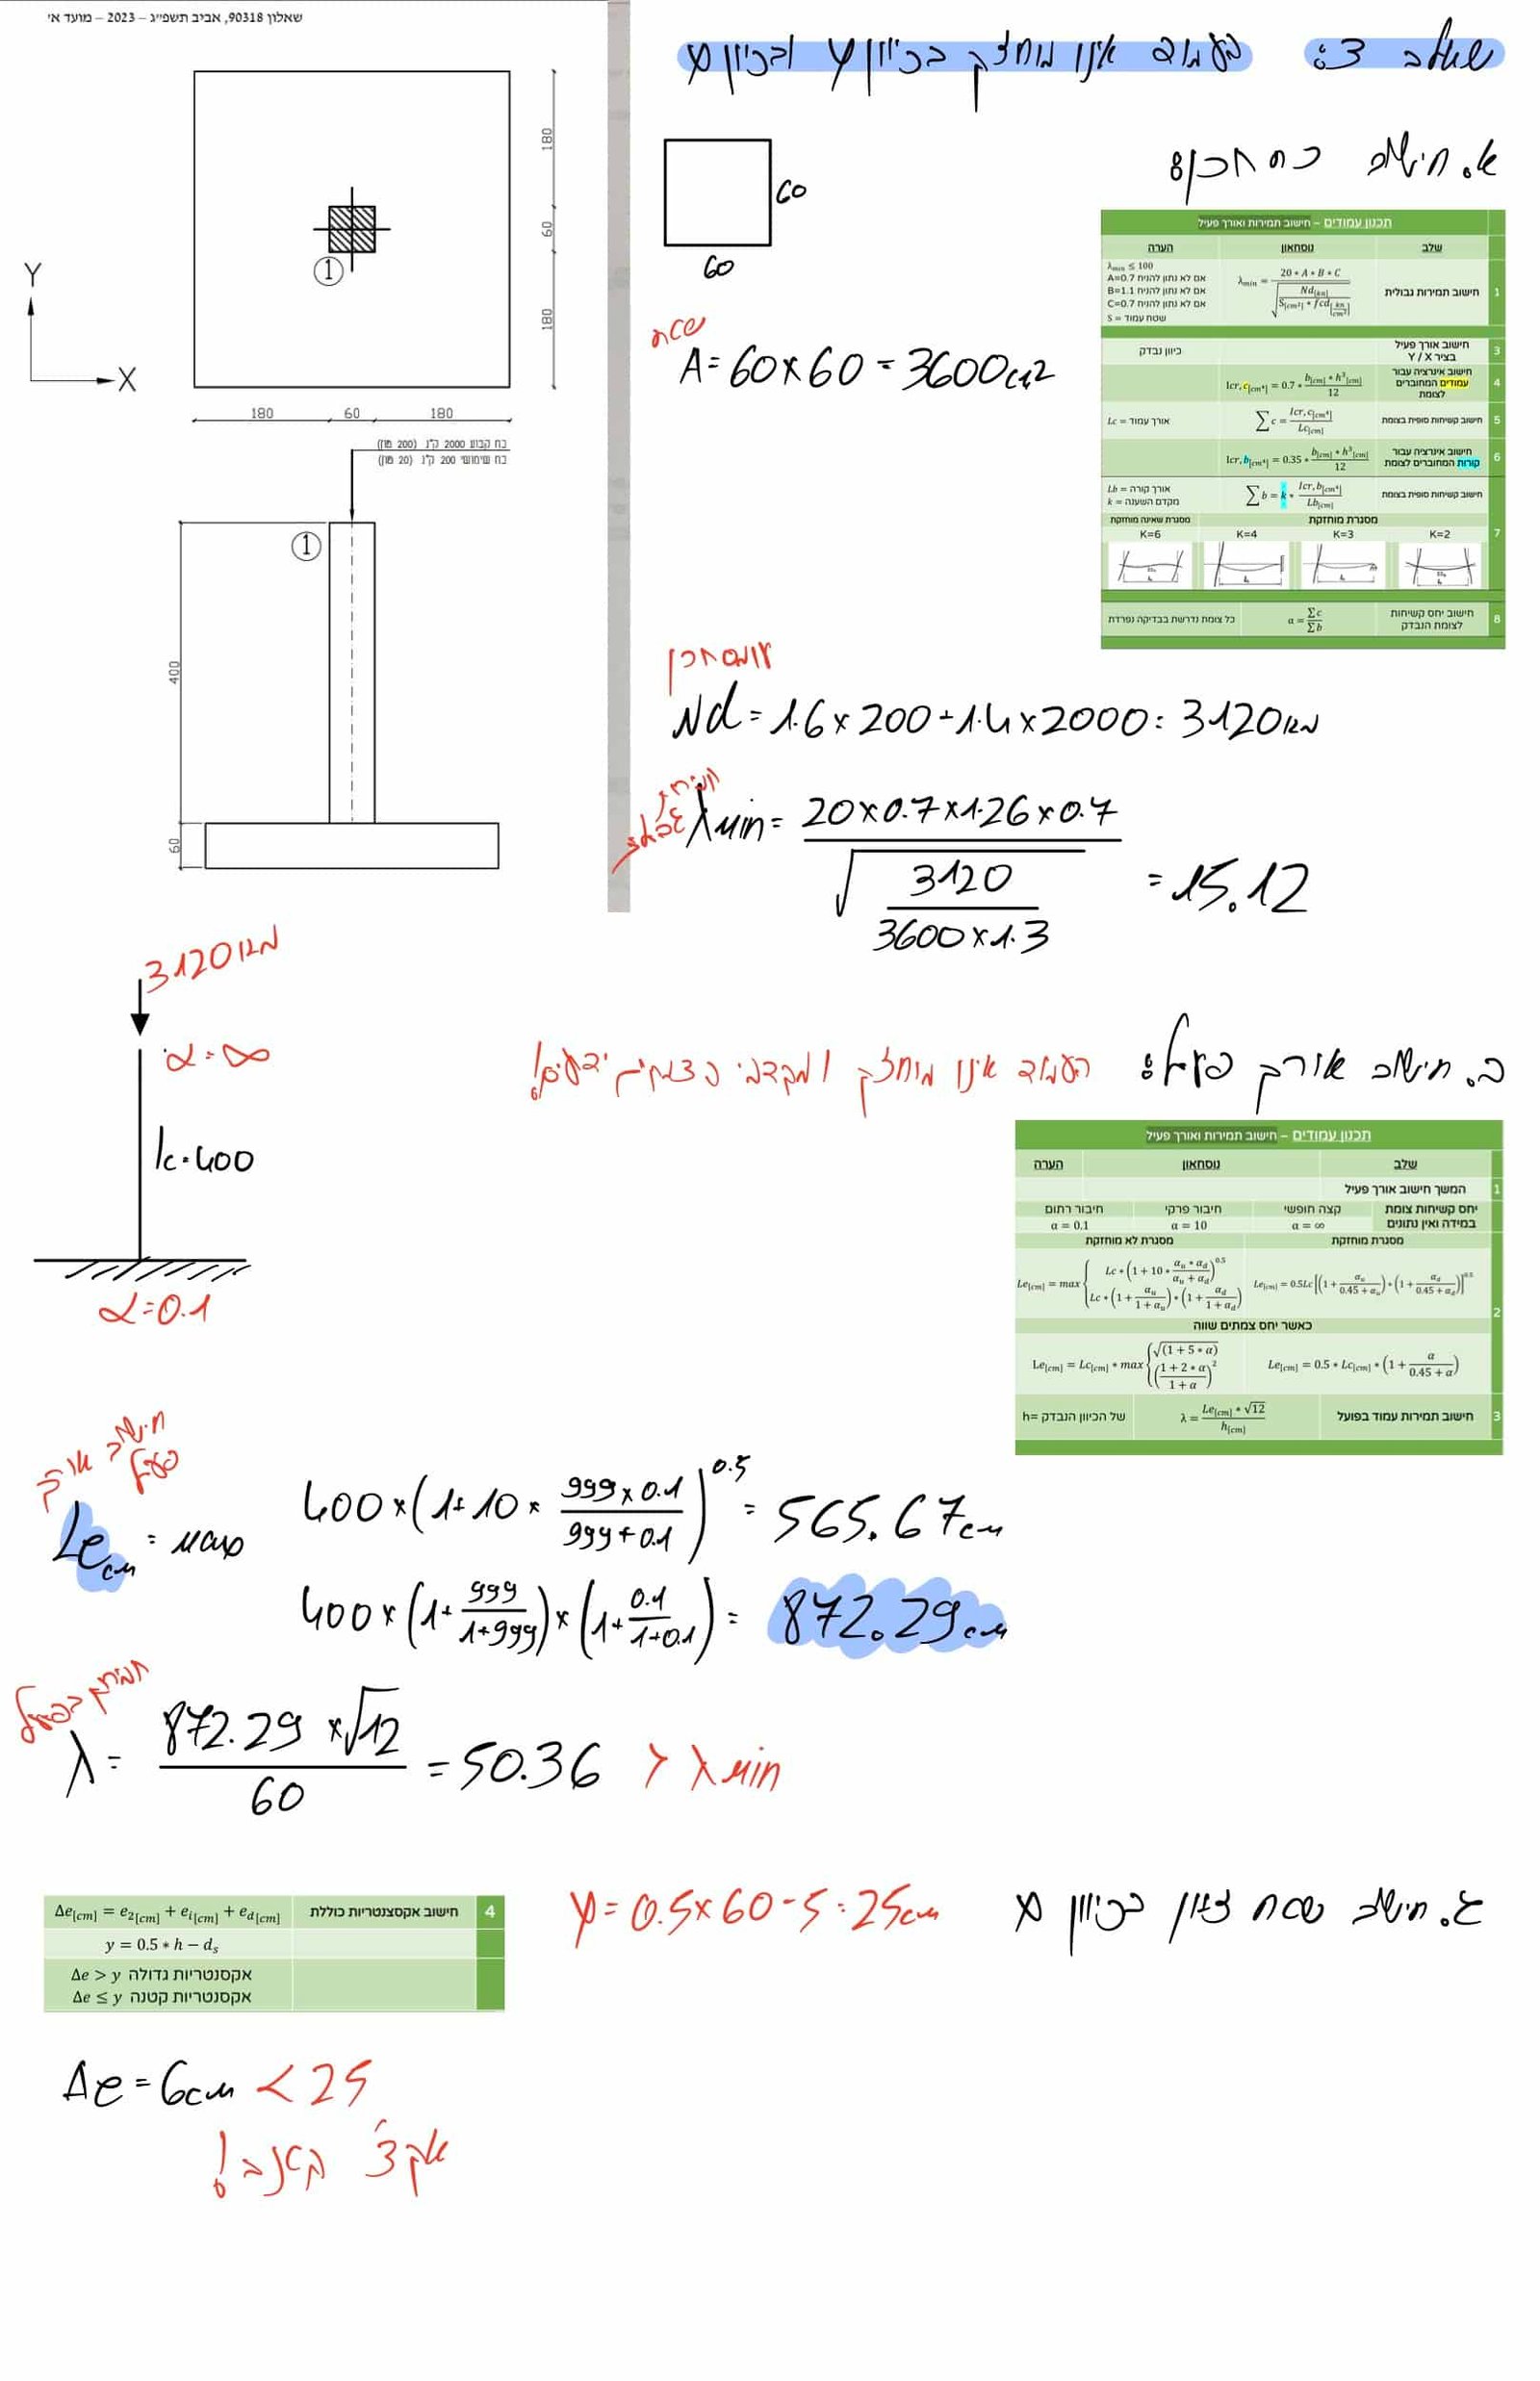 שאלון 90318, אביב תשפ״ג – 2023 – מועד א׳
שאלה 3: העמוד אינו מוחזק בכיוון Y ובכיוון X
180
60
180
1
Y
X
180
60
180
כח קבוע 2000 ק״נ (200 טון)
כח שימושי 200 ק״נ (20 טון)
1
400
60
60
60
א. חישוב כח תכן:
שטח
A = 60×60 = 3600cm2
תכנון עמודים – חישוב תמירות ואורך פעיל
שלב נוסחאון הערה
1 חישוב תמירות גבולית λmin = 20 * A * B * C / √(Nd[kn] / S[cm²] * fcd[kn/cm²])
λmin ≤ 100
אם לא נתון להניח A=0.7
אם לא נתון להניח B=1.1
אם לא נתון להניח C=0.7
S = שטח עמוד
3 חישוב אורך פעיל בציר Y / X כיוון נבדק
4 חישוב אינרציה עבור עמודים המחוברים לצומת Icr,c[cm⁴] = 0.7 * b[cm] * h³[cm] / 12
5 חישוב קשיחות סופית בצומת ∑c = Icr,c[cm⁴] / Lc[cm] Lc = אורך עמוד
6 חישוב אינרציה עבור קורות המחוברים לצומת Icr,b[cm⁴] = 0.35 * b[cm] * h³[cm] / 12
חישוב קשיחות סופית בצומת ∑b = k * Icr,b[cm⁴] / Lb[cm] Lb = אורך קורה
k = מקדם השענה
7 מסגרת מוחזקת מסגרת שאינה מוחזקת
K=2 K=3 K=4 K=6
8 חישוב יחס קשיחות לצומת הנבדק α = ∑c / ∑b כל צומת נדרשת בבדיקה נפרדת
עומס תכן
Nd = 1.6×200+1.4×2000 = 3120 קנ
תמירות גבולית
λmin = 20×0.7×1.26×0.7 / √(3120 / 3600×1.3) = 15.12
3120 קנ
α = ∞
lc = 400
α = 0.1
ב. חישוב אורך פעיל: העמוד אינו מוחזק ומקדמי הצמתים ידועים!
תכנון עמודים – חישוב תמירות ואורך פעיל
שלב נוסחאון הערה
1 המשך חישוב אורך פעיל
יחס קשיחות צומת במידה ואין נתונים קצה חופשי α = ∞ חיבור פרקי α = 10 חיבור רתום α = 0.1
2 מסגרת מוחזקת מסגרת לא מוחזקת
Le[cm] = 0.5Lc[(1 + αu / 0.45 + αu) * (1 + αd / 0.45 + αd)]^0.5
Le[cm] = max { Lc * (1 + 10 * αu * αd / αu + αd)^0.5
Lc * (1 + αu / 1 + αu) * (1 + αd / 1 + αd)
כאשר יחס צמתים שווה
Le[cm] = 0.5 * Lc[cm] * (1 + α / 0.45 + α)
Le[cm] = Lc[cm] * max { √(1 + 5 * α)
(1 + 2 * α / 1 + α)²
3 חישוב תמירות עמוד בפועל λ = Le[cm] * √12 / h[cm] h= של הכיוון הנבדק
חישוב אורך פעיל
Le cm = max
400×(1+10× 999×0.1 / 999+0.1)^0.5 = 565.67cm
400×(1+ 999 / 1+999)×(1+ 0.1 / 1+0.1) = 872.29cm
תמירות בפועל
λ = 872.29 ×√12 / 60 = 50.36 > λmin
ג. חישוב שטח זיון בכיוון X
y = 0.5×60-5 = 25cm
4 חישוב אקסצנטריות כוללת Δe[cm] = e2[cm] + ei[cm] + ed[cm]
y = 0.5 * h − ds
אקסנטריות גדולה Δe > y
אקסנטריות קטנה Δe ≤ y
Δe = 6cm < 25
אקצ׳ קטנה!